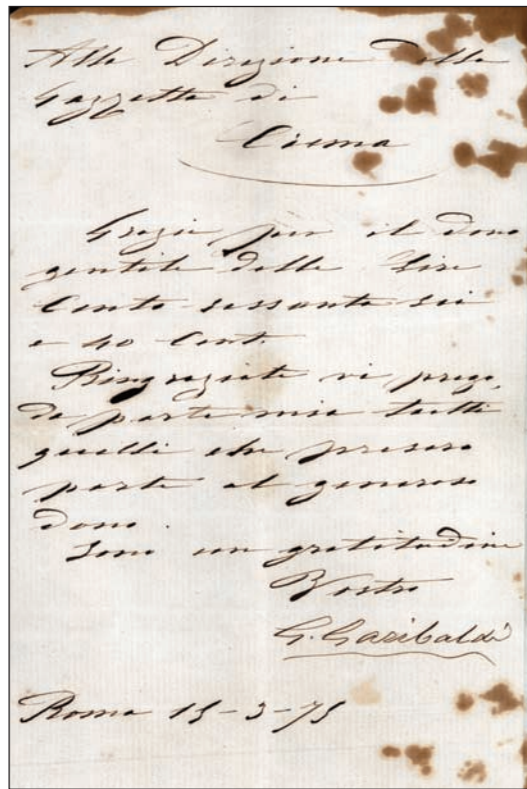 Alla Direzione della
Gazzetta di
Crema
Grazie per il dono
gentile delle Lire
Cento sessanta sei
e 40 Cent.
Ringraziate vi prego,
da parte mia tutti
quelli che presero
parte al generoso
dono.
Sono con gratitudine
Vostro
G. Garibaldi
Roma 15-3-75